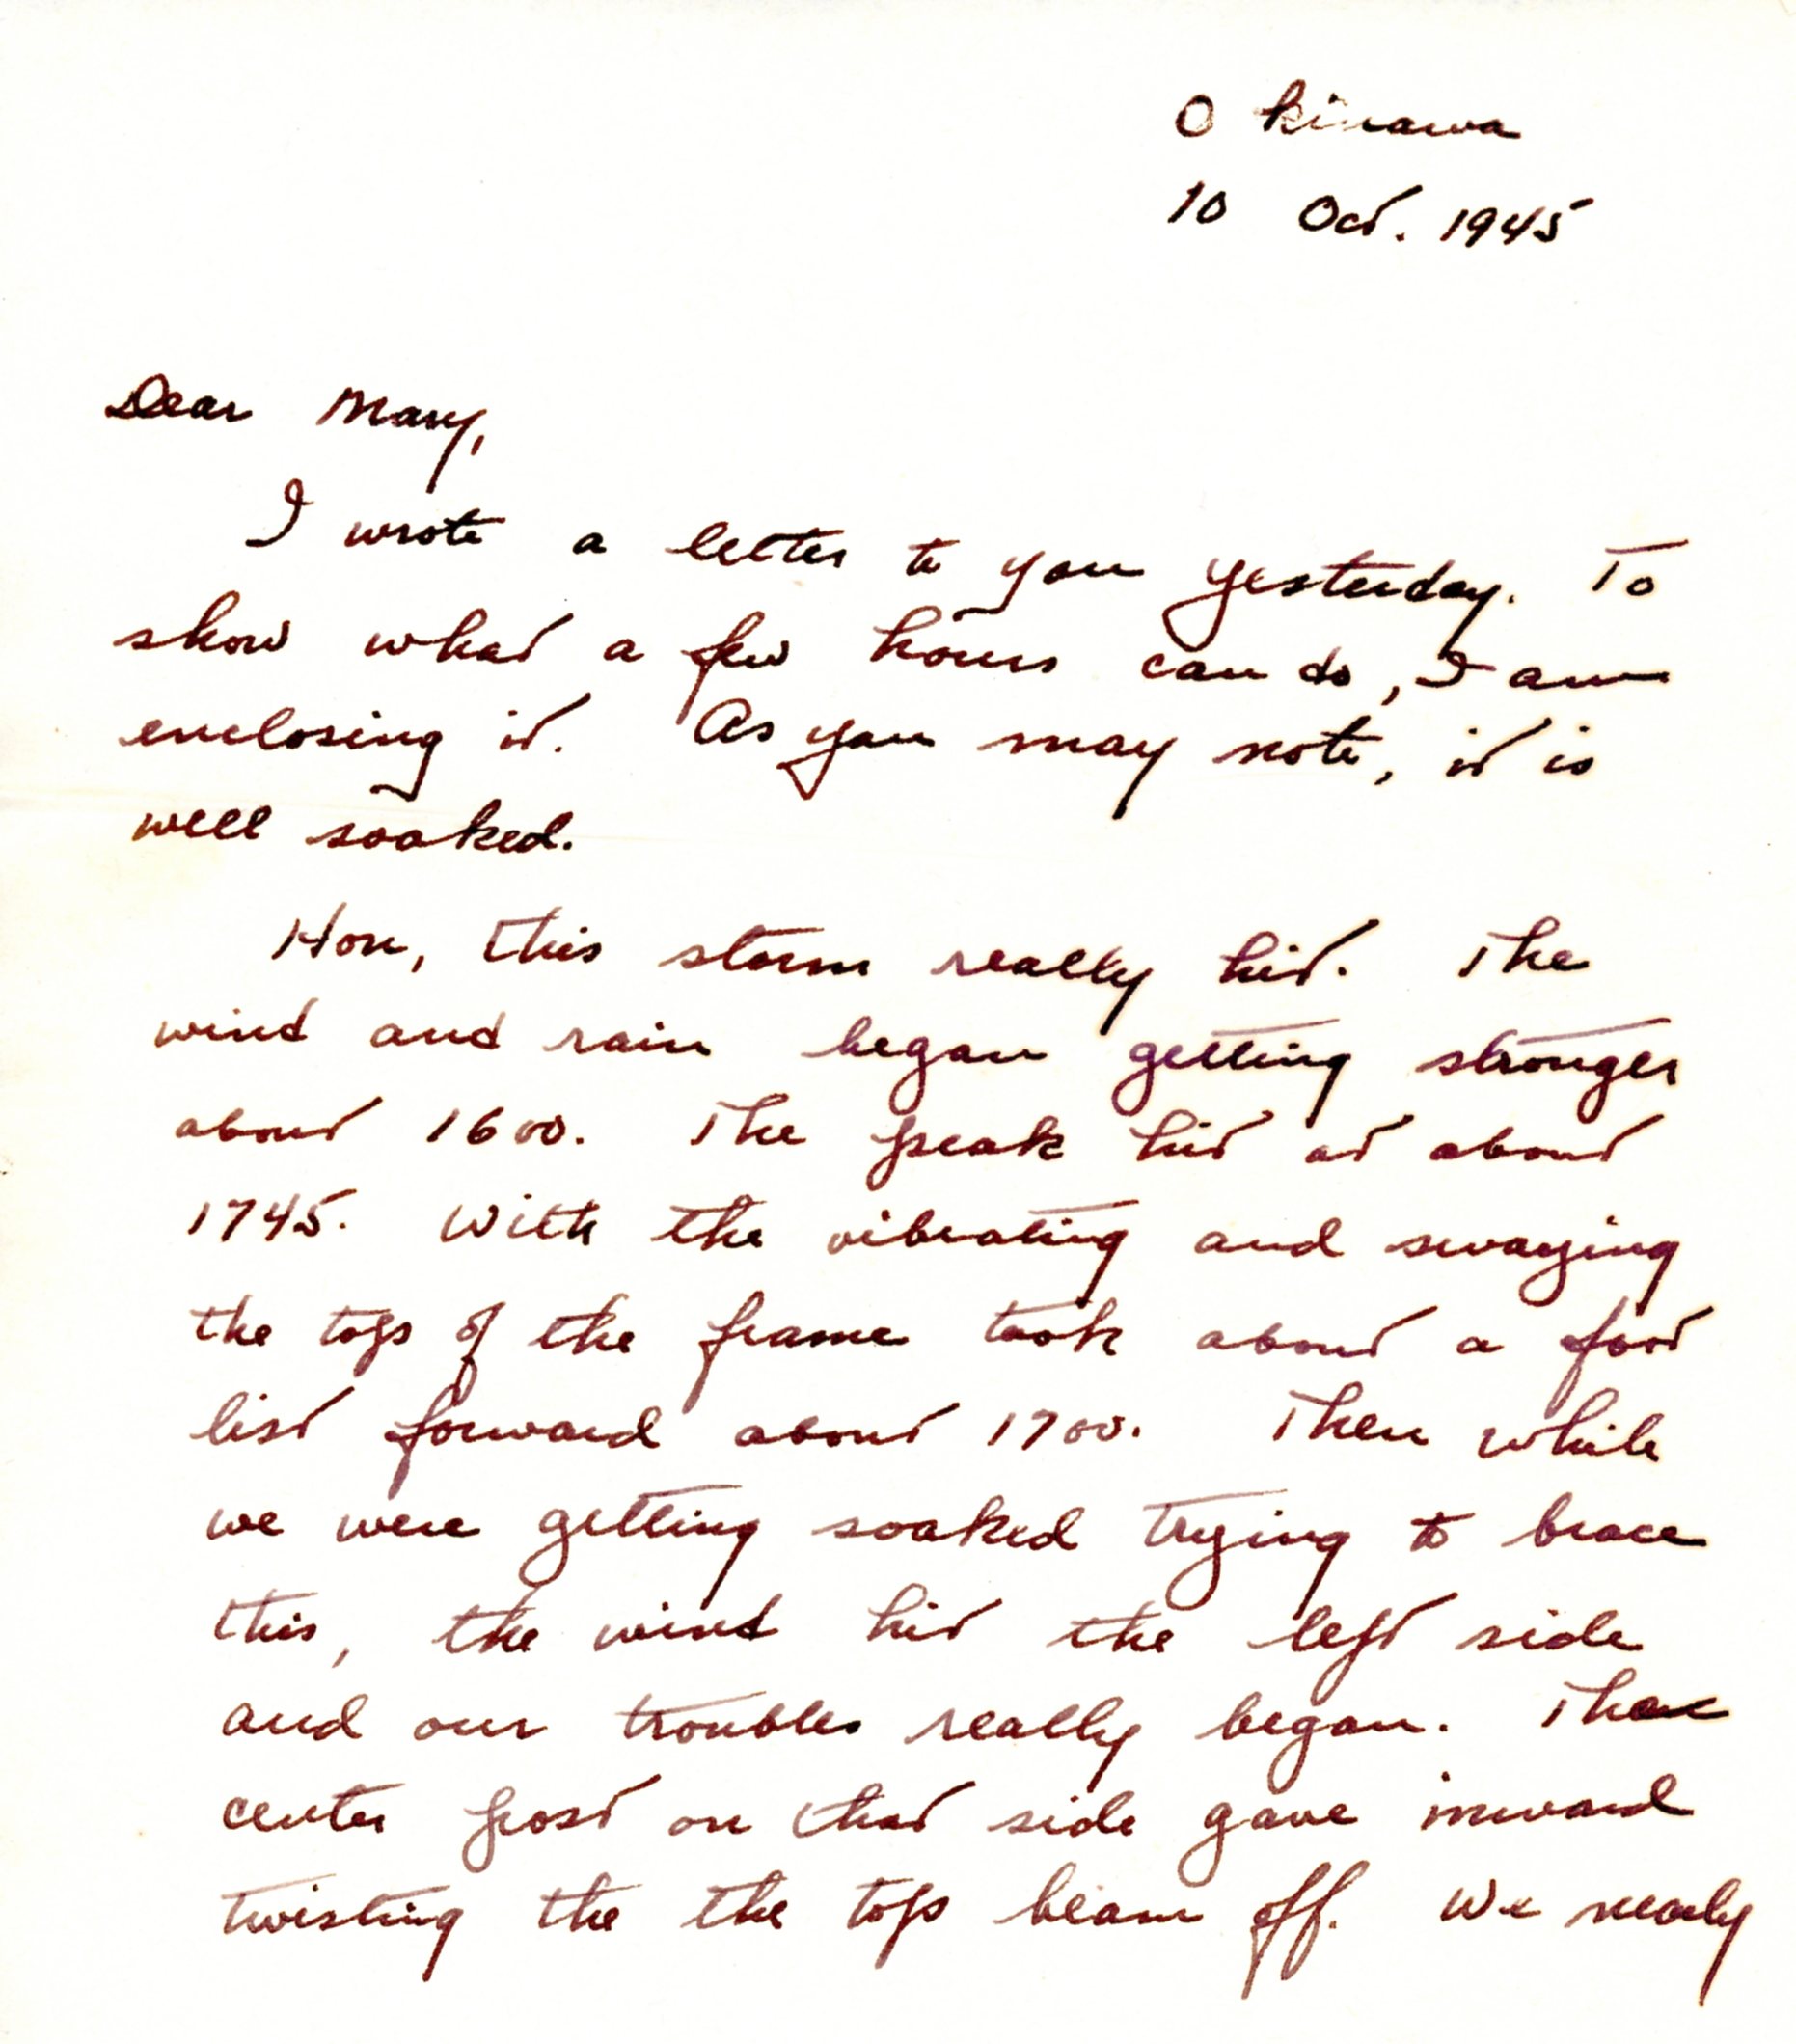 Okinawa
10 Oct. 1945
Dear Mary,
I wrote a letter to you yesterday. To
show what a few hours can do, I am
enclosing it. As you may note, it is
well soaked.
Hon, this storm really hit. The
wind and rain began getting stronger
about 1600. The peak hit at about
1745. With the vibrating and swaying
the top of the frame took about a foot
list forward about 1700. Then while
we were getting soaked trying to brace
this, the wind hit the left side
and our troubles really began. The
center post on that side gave inward
twisting the the top beam off. We nearly